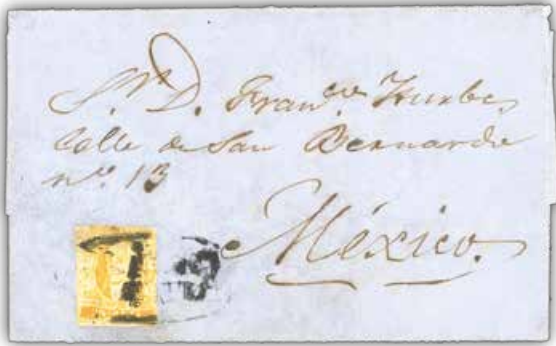 Sr. D. Franco
Calle de San Bernardo
no. 13
México.